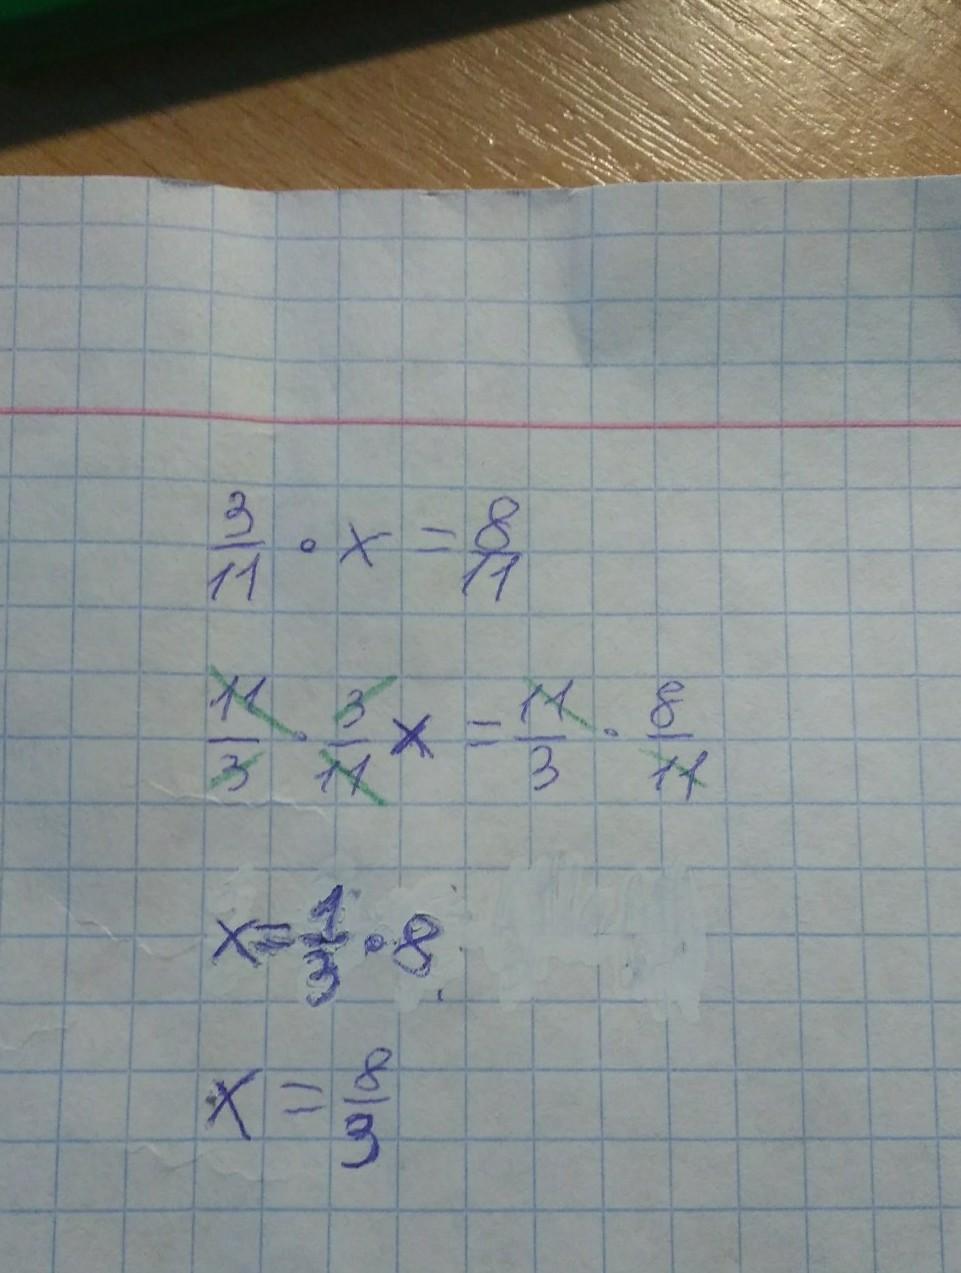 3/11 · x = 8/11
11/3 · 3/11 x = 11/3 · 8/11
x = 1/3 · 8
x = 8/3